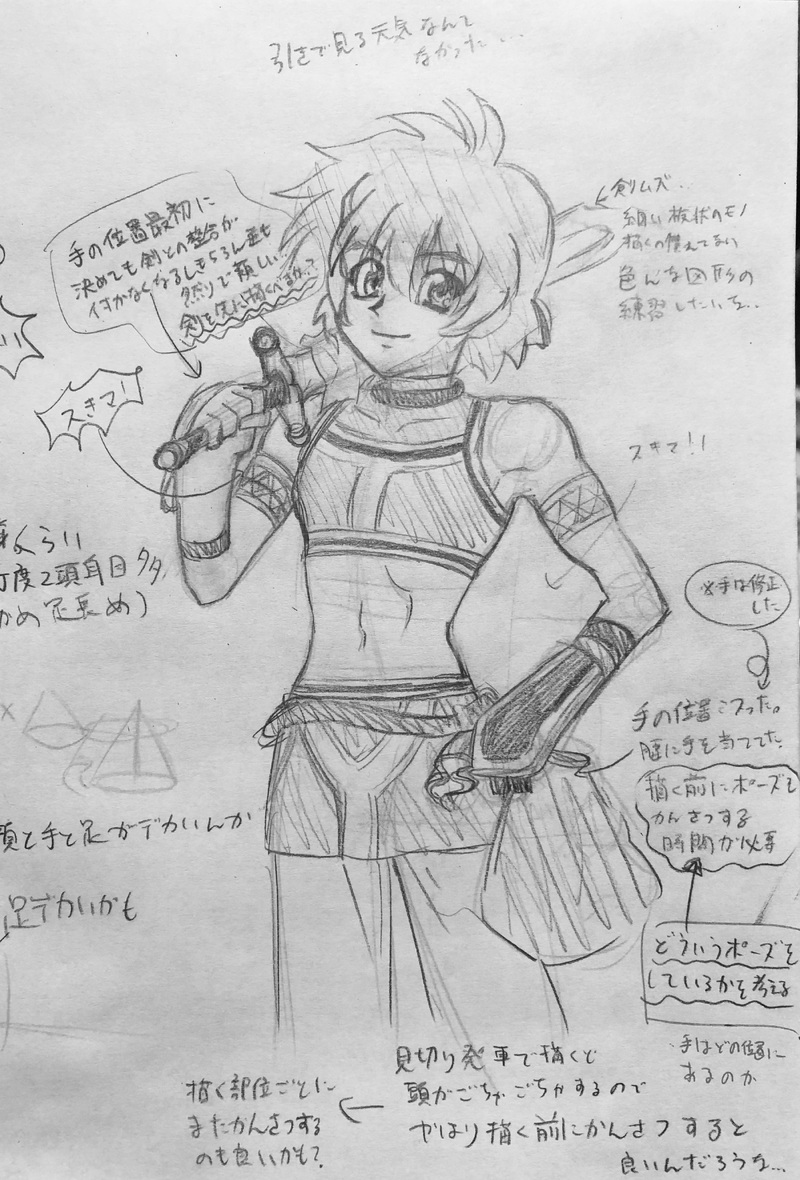 引きで見る元気なんて
なかった…
手の位置最初に
決めても剣との整合が
付かなくなるしきちろん逆も
然りで難しい…
剣を先に描くべきか?
スキマ!
←剣ムズ..
細い板状のモノ
描くの慣れてない
色んな図形の
練習したいな..
スキマ!!
くらい
丁度2頭身目タタ
かめ足長め)
※手は修正
した
手の位置ミスった。
腰に手を当ててた
描く前にポーズを
かんさつする
時間が必要
頭と手と足がデカいんか
足デカいかも
どういうポーズを
しているかを考える
手はどの位置に
あるのか
見切り発車で描くと
頭がごちゃごちゃするので
やはり描く前にかんさつすると
良いんだろうな…
描く部位ごとに
またかんさつする
のも良いかも?